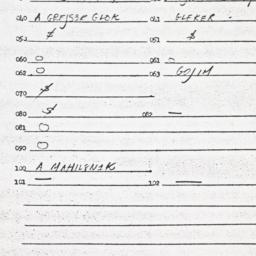 040 A GROISSR GLOK 041 GLEKER.
052 $ 051 $
060 O 061 —
062 O 063 GOJIM
070 $
080 $ 080 —
081 O
090 O
100 A MAHILENAK
101 — 102 —